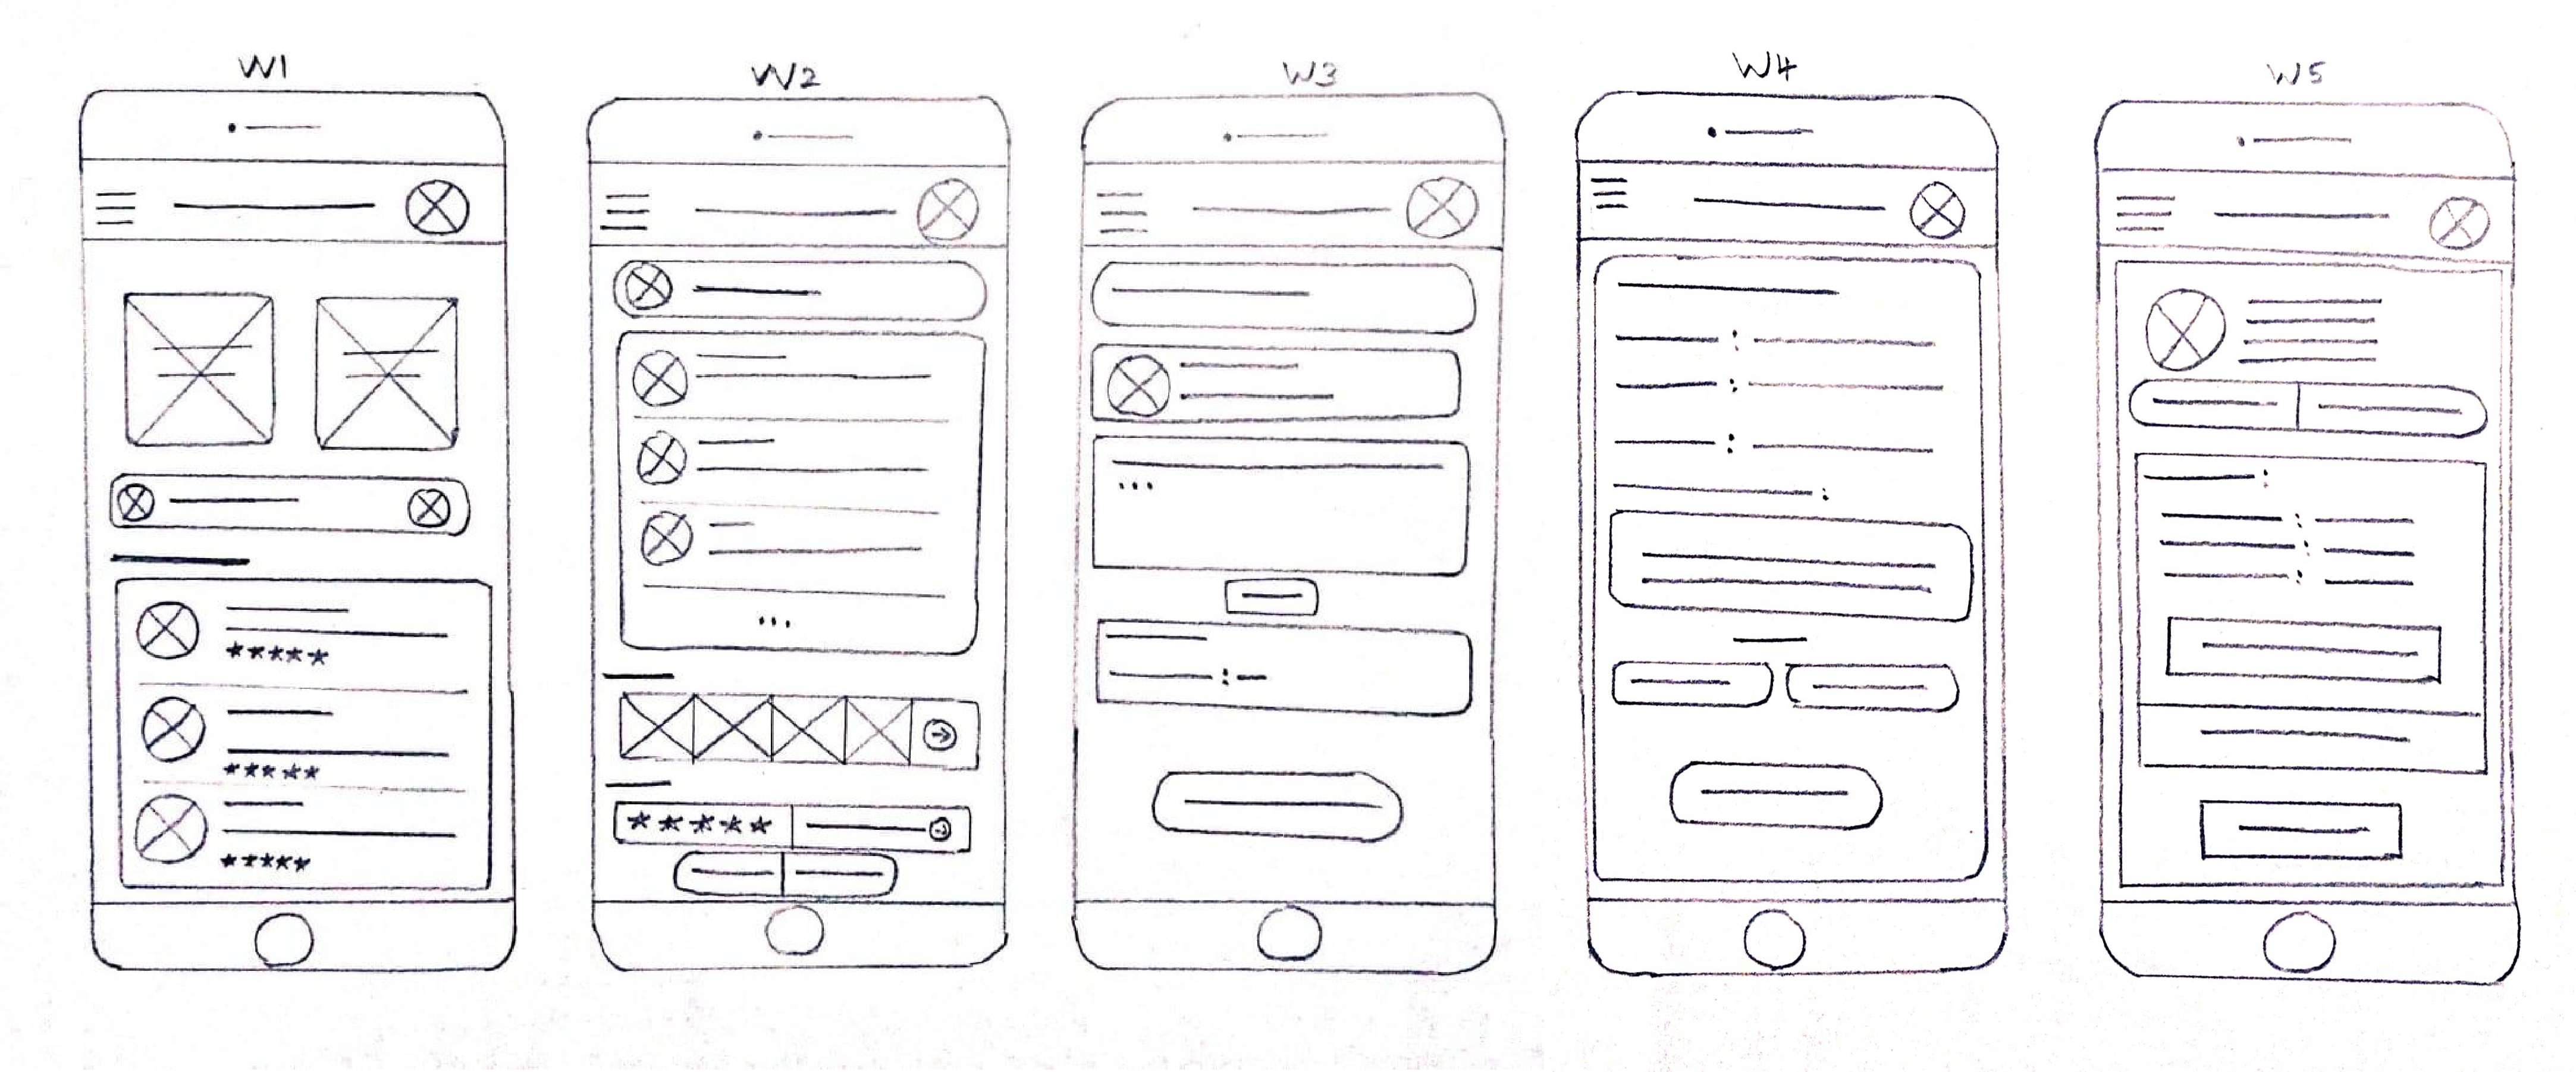 W1
W2
W3
W4
W5